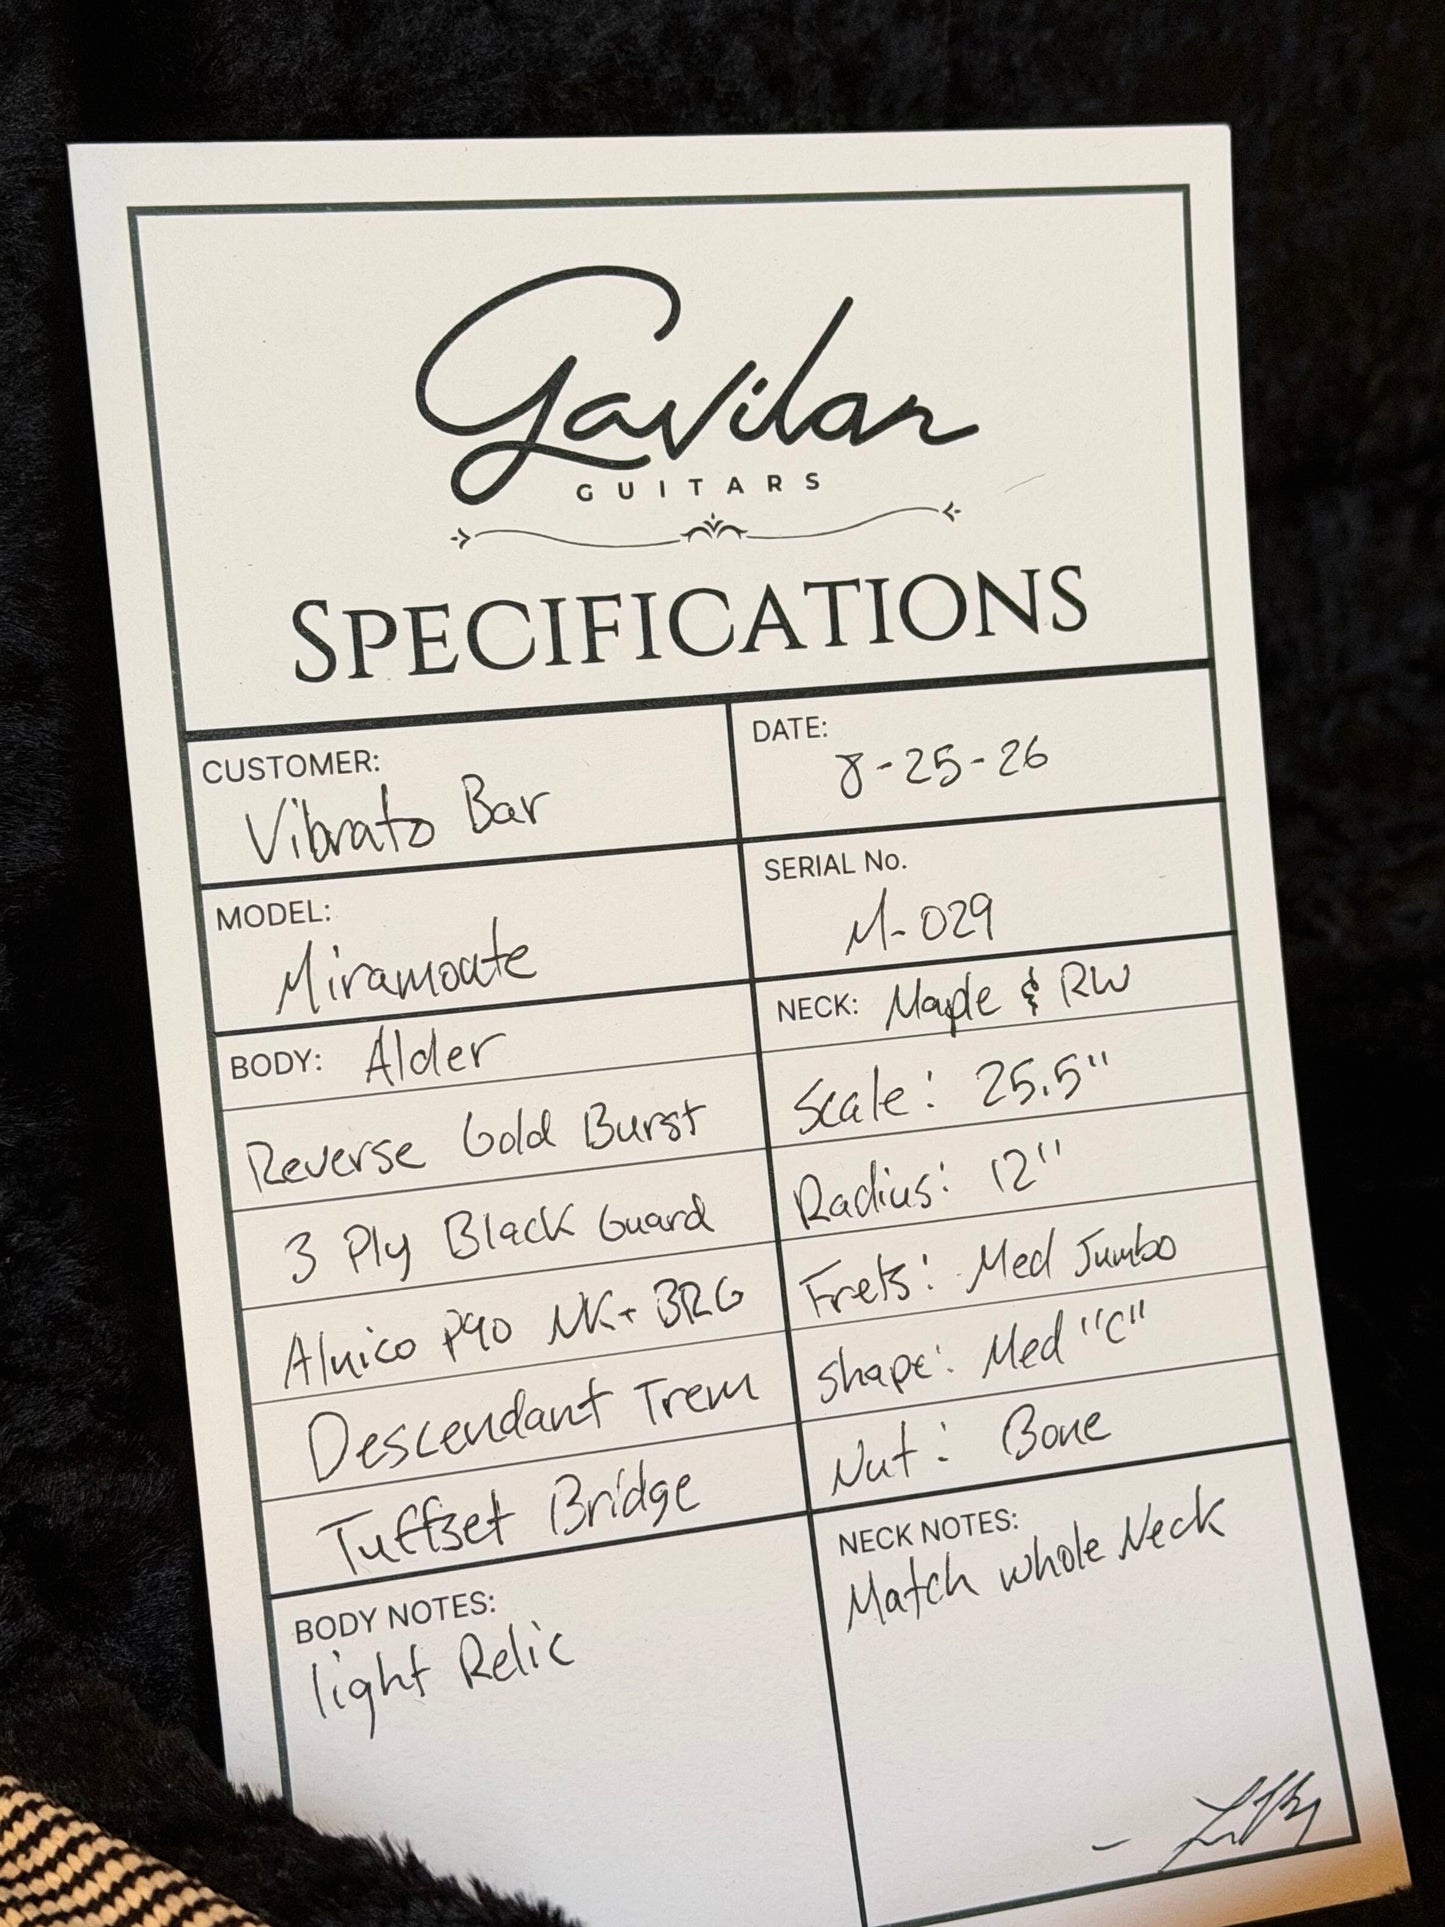 Gavilan
GUITARS
SPECIFICATIONS
CUSTOMER:
Vibrato Bar
DATE:
8-25-26
MODEL:
Miramonte
SERIAL No.
M-029
BODY: Alder
Reverse Gold Burst
3 Ply Black Guard
Alnico P90 NK+BRG
Descendant Trem
Tuffset Bridge
NECK: Maple & RW
Scale: 25.5"
Radius: 12"
Frets: Med Jumbo
Shape: Med "C"
Nut: Bone
BODY NOTES:
light Relic
NECK NOTES:
Match whole Neck